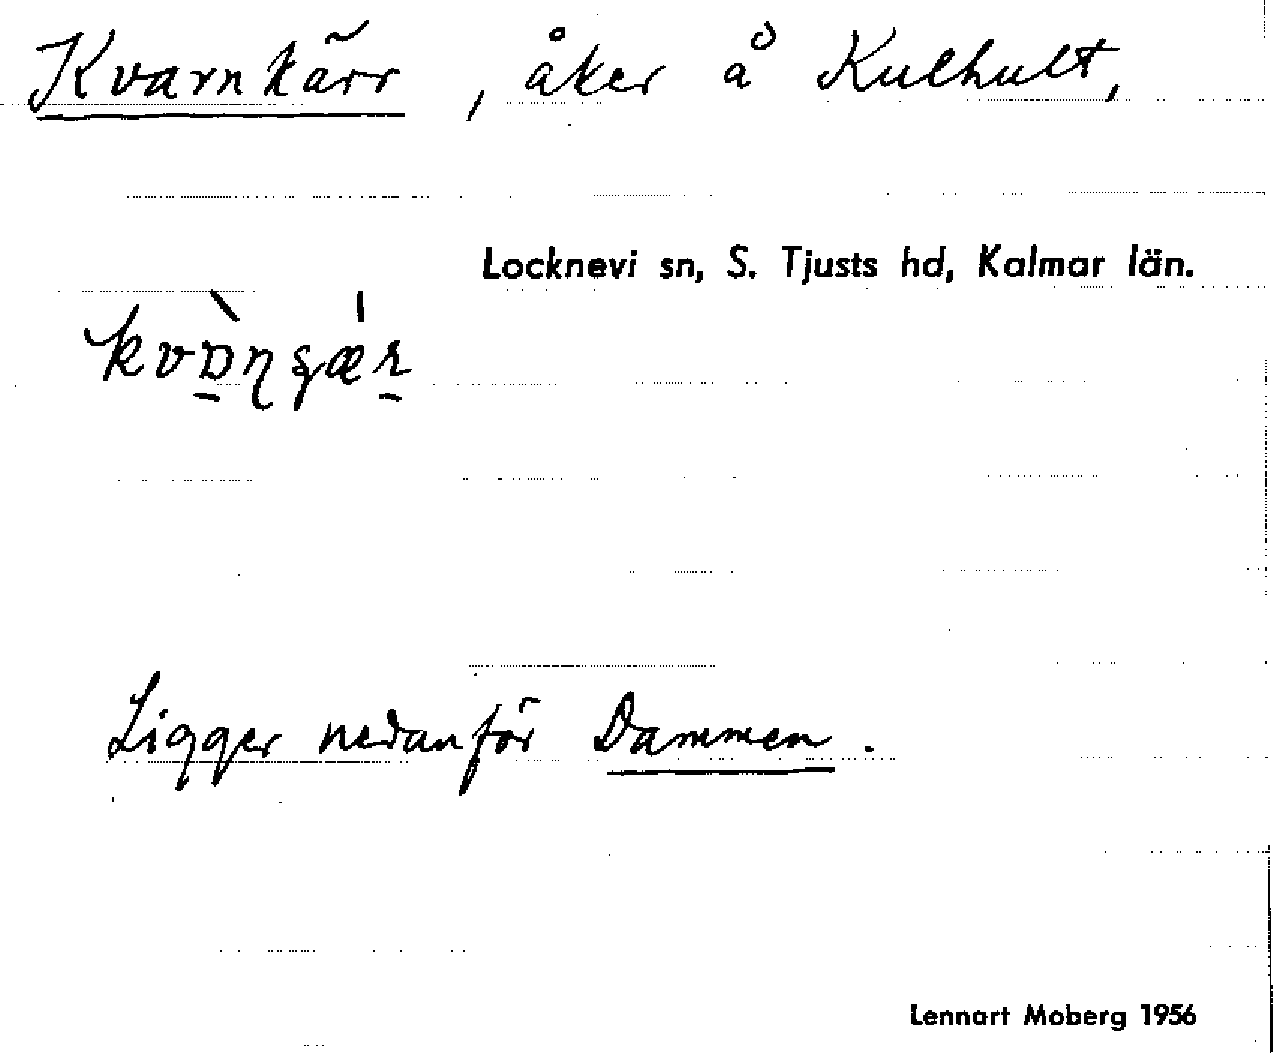 Kvarnkärr, åker å Kulhult,
Locknevi sn, S. Tjusts hd, Kalmar län.
Ligger nedanför Dammen.
Lennart Moberg 1956